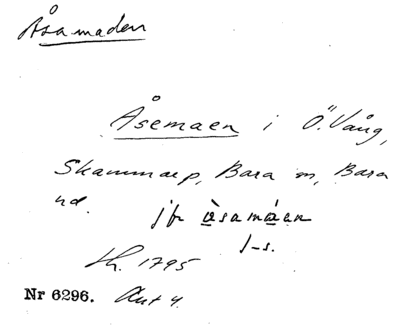 Åsamaden
Åsemaen i Ö. Vång,
Skammarp, Bara sn, Bara
hd. jfr åsamáen
Nr 6296. Akt 4.